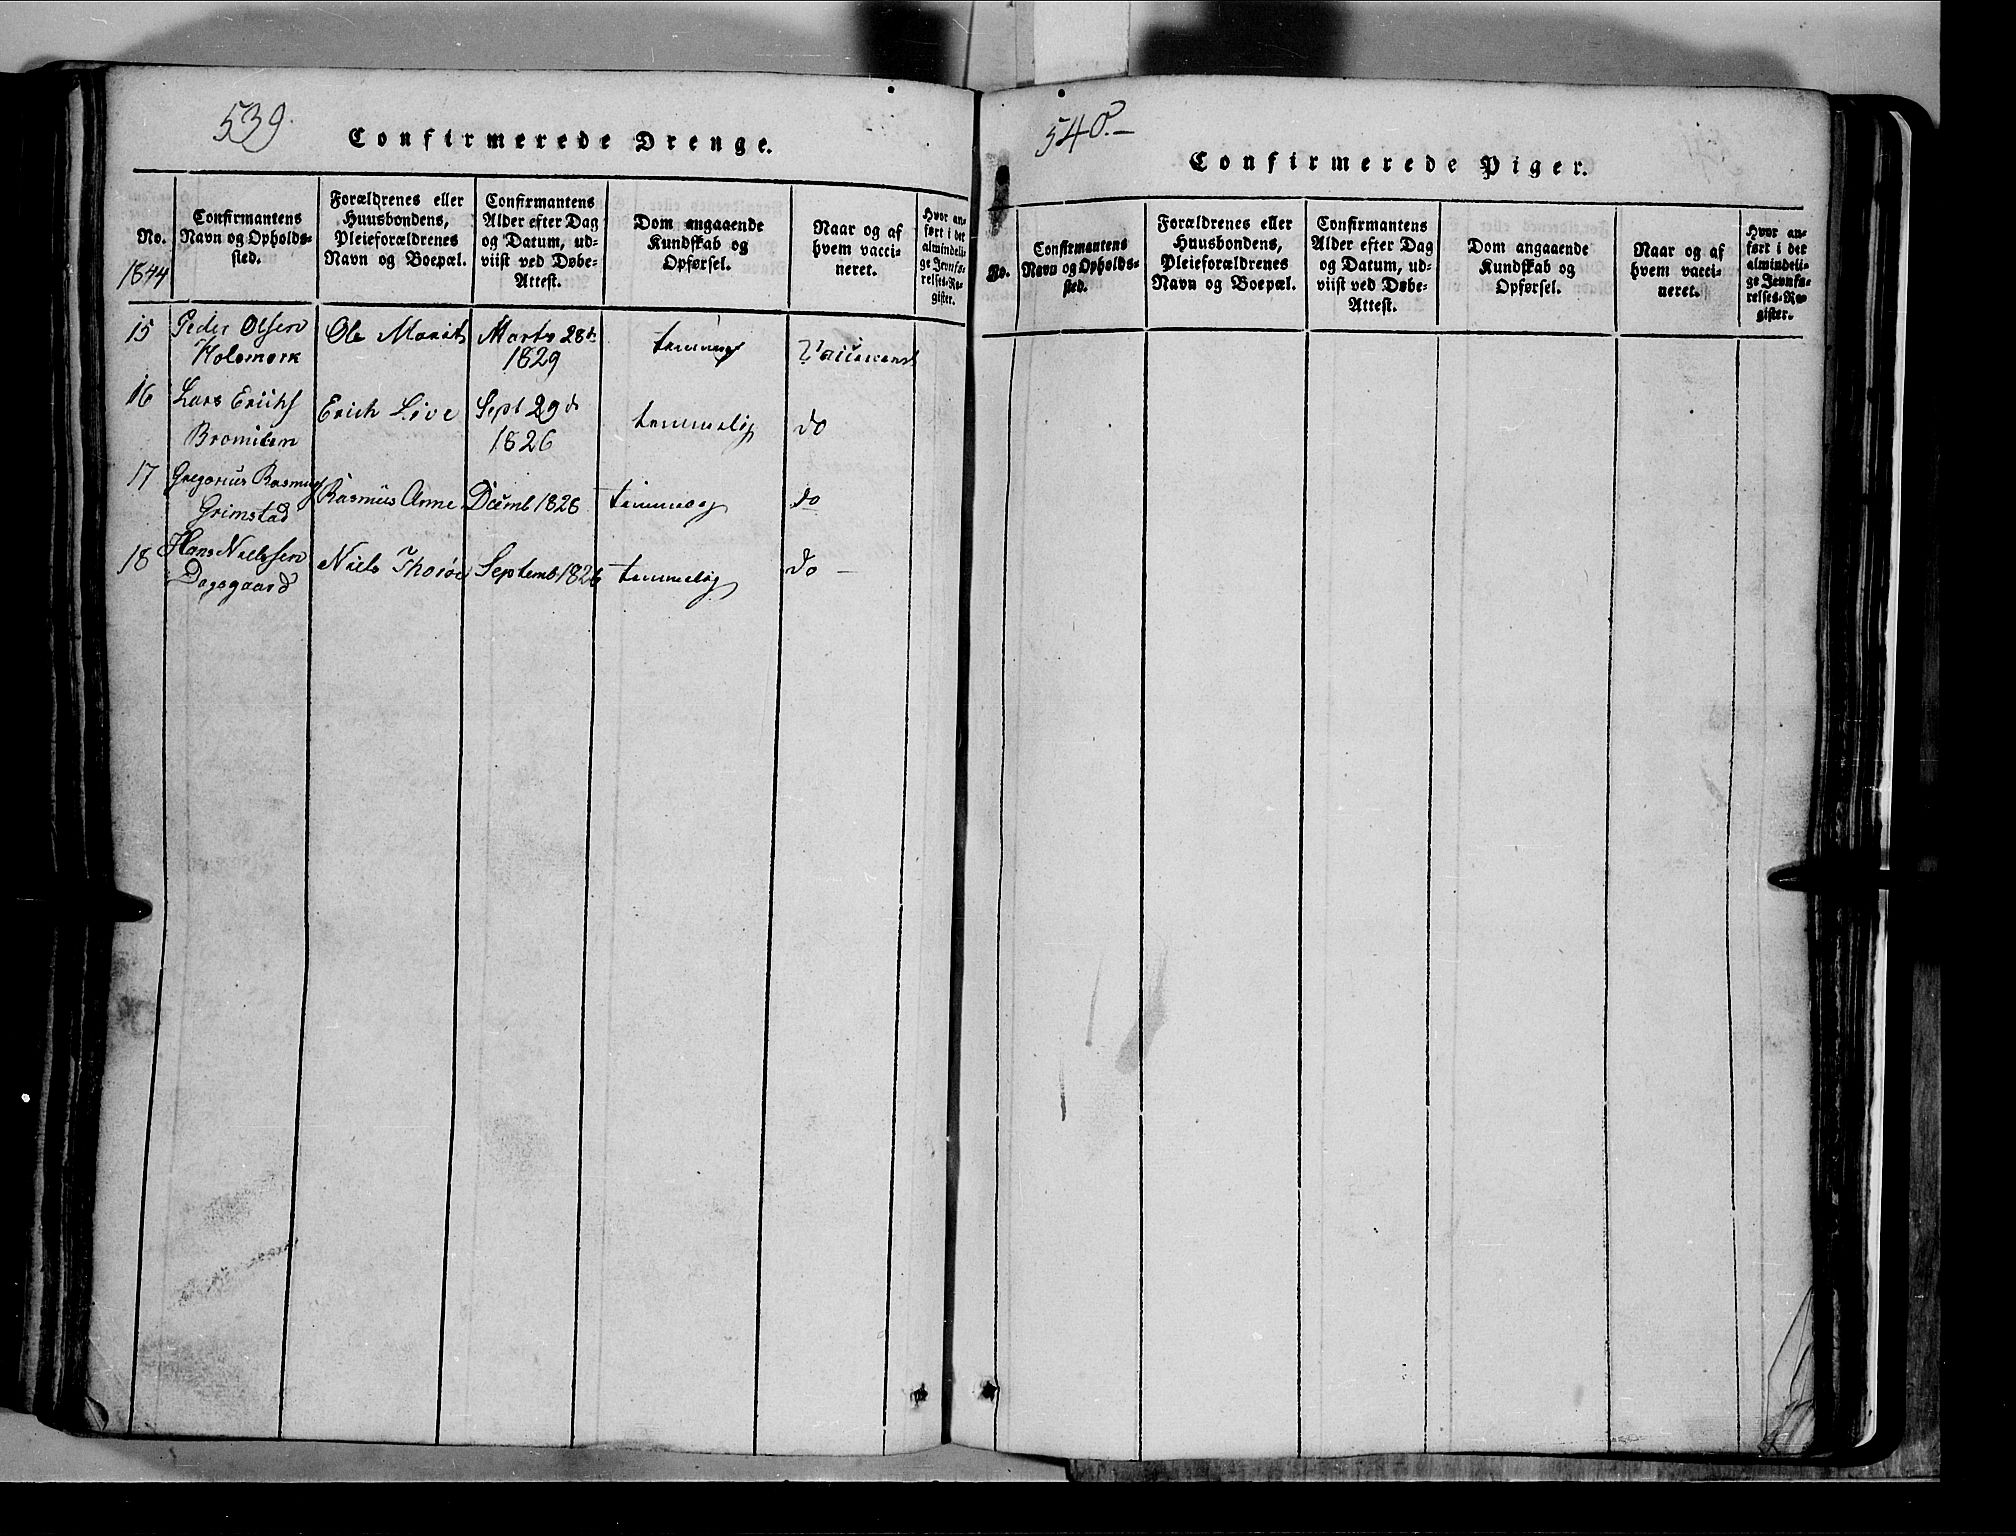 539.
Confirmerede Drenge.
No.
1844
Confirmantens
Navn og Opholds-
sted.
Forældrenes eller
Huusbondens,
Pleieforældrenes
Navn og Boepæl.
Confirmantens
Alder efter Dag
og Datum, ud-
viist ved Døbe-
Attest.
Dom angaaende
Kundskab og
Opførsel.
Naar og af
hvem vacci-
neret.
Hvor an-
ført i det
almindeli-
ge Jevnfø-
relses-Re-
gister.
15 Peder Olsen Ole Marts 28de
Holsmark 1829
16 Lars Erichs Erich Live Sept 29de temmelig do
Bromilem 1826
17 Gregorius Rasmus Rasmus Anne Decemb 1828 do
Grimstad
18 Hans Nielssen Niels Thorøe Septemb 1826 temmelig do —
Dagsgaard
540.—
Confirmerede Piger.
No.
Confirmantens
Navn og Opholds-
sted.
Forældrenes eller
Huusbondens,
Pleieforældrenes
Navn og Boepæl.
Confirmantens
Alder efter Dag
og Datum, ud-
viist ved Døbe-
Attest.
Dom angaaende
Kundskab og
Opførsel.
Naar og af
hvem vacci-
neret.
Hvor an-
ført i det
almindeli-
ge Jevnfø-
relses-Re-
gister.